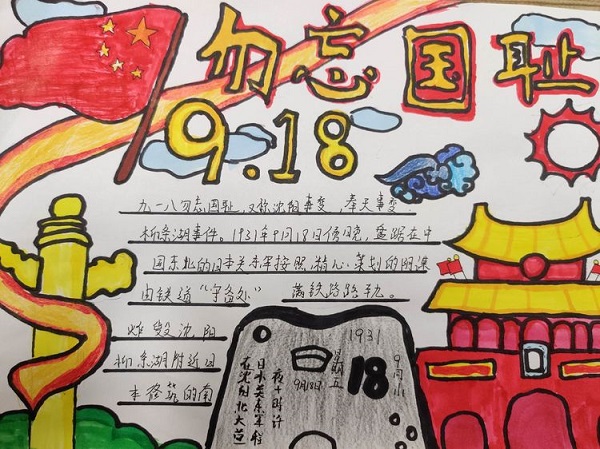 勿忘国耻
9.18
九一八勿忘国耻,又称沈阳事变,奉天事变
柳条湖事件。1931年9月18日傍晚,盘踞在中
国东北的日本关东军按照精心策划的阴谋
由铁道“守备队” 满铁路路轨。
炸毁沈阳
柳条湖附近日
本修筑的南
1931
9月小
18
星期五
9月18日
夜十时许
日本关东军
在沈阳北大营